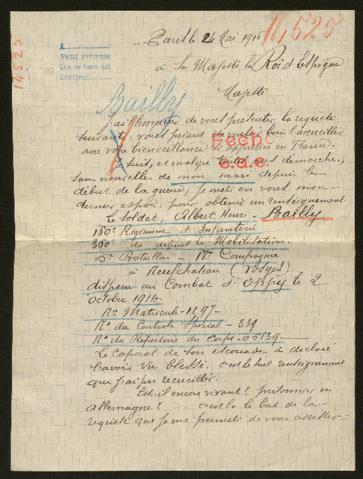 14525
14525
Paris le 24 Mai 1915
à Sa Majesté le Roi d'Espagne
Majesté
Bailly
J'ai l'honneur de vous présenter la requête
suivante, vous priant de vouloir bien l'accueillir
avec votre bienveillance si appréciée en France.
Fech
Je suis, et malgré toutes démarches,
sans nouvelles de mon mari depuis le
début de la guerre, je mets en vous mon
dernier espoir pour obtenir un renseignement
Le soldat, Albert Henri - Bailly
160e Régiment d'Infanterie
300e du dépôt de Mobilisation.
5e Bataillon - Compagnie
à Neufchateau (Vosges)
disparu au Combat d' le 2
Octobre 1914
No Matricule - 1297 -
No du Controle Spécial - 339
No du Répertoire du Corps 05139
Le Caporal de son escouade a déclaré
l'avoir vu blessé, c'est le seul renseignement
que j'ai pu recueillir.
Est-il encore vivant? prisonnier en
Allemagne? ... c'est le but de la
requête que je me permets de vous adresser